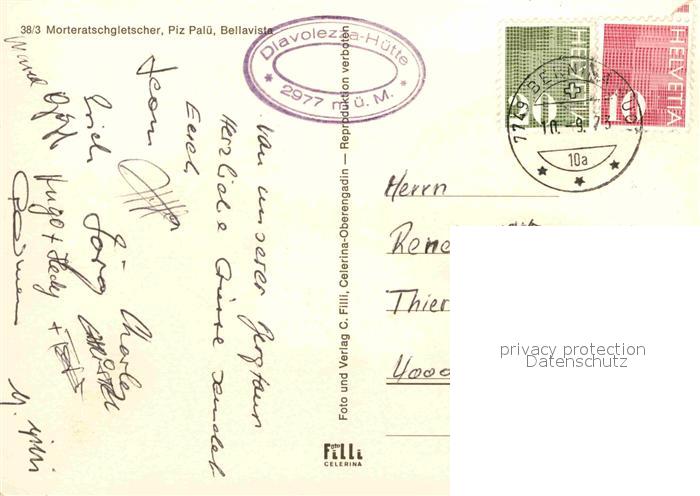 38/3 Morteratschgletscher, Piz Palü, Bellavista
Diavolezza-Hütte
* 2977 m ü. M. *
HELVETIA
10
HELVETIA
10
7749 BERNINA
10.-9.73
10a
Von unserer Bergtour
Herzliche Grüsse sendet
Euch
Jörg
Charles
Hugo + Hedy +
Foto und Verlag C. Filli, Celerina-Oberengadin — Reproduktion verboten
Foto
Filli
CELERINA
Herrn
Rene
Thier
4000
privacy protection
Datenschutz